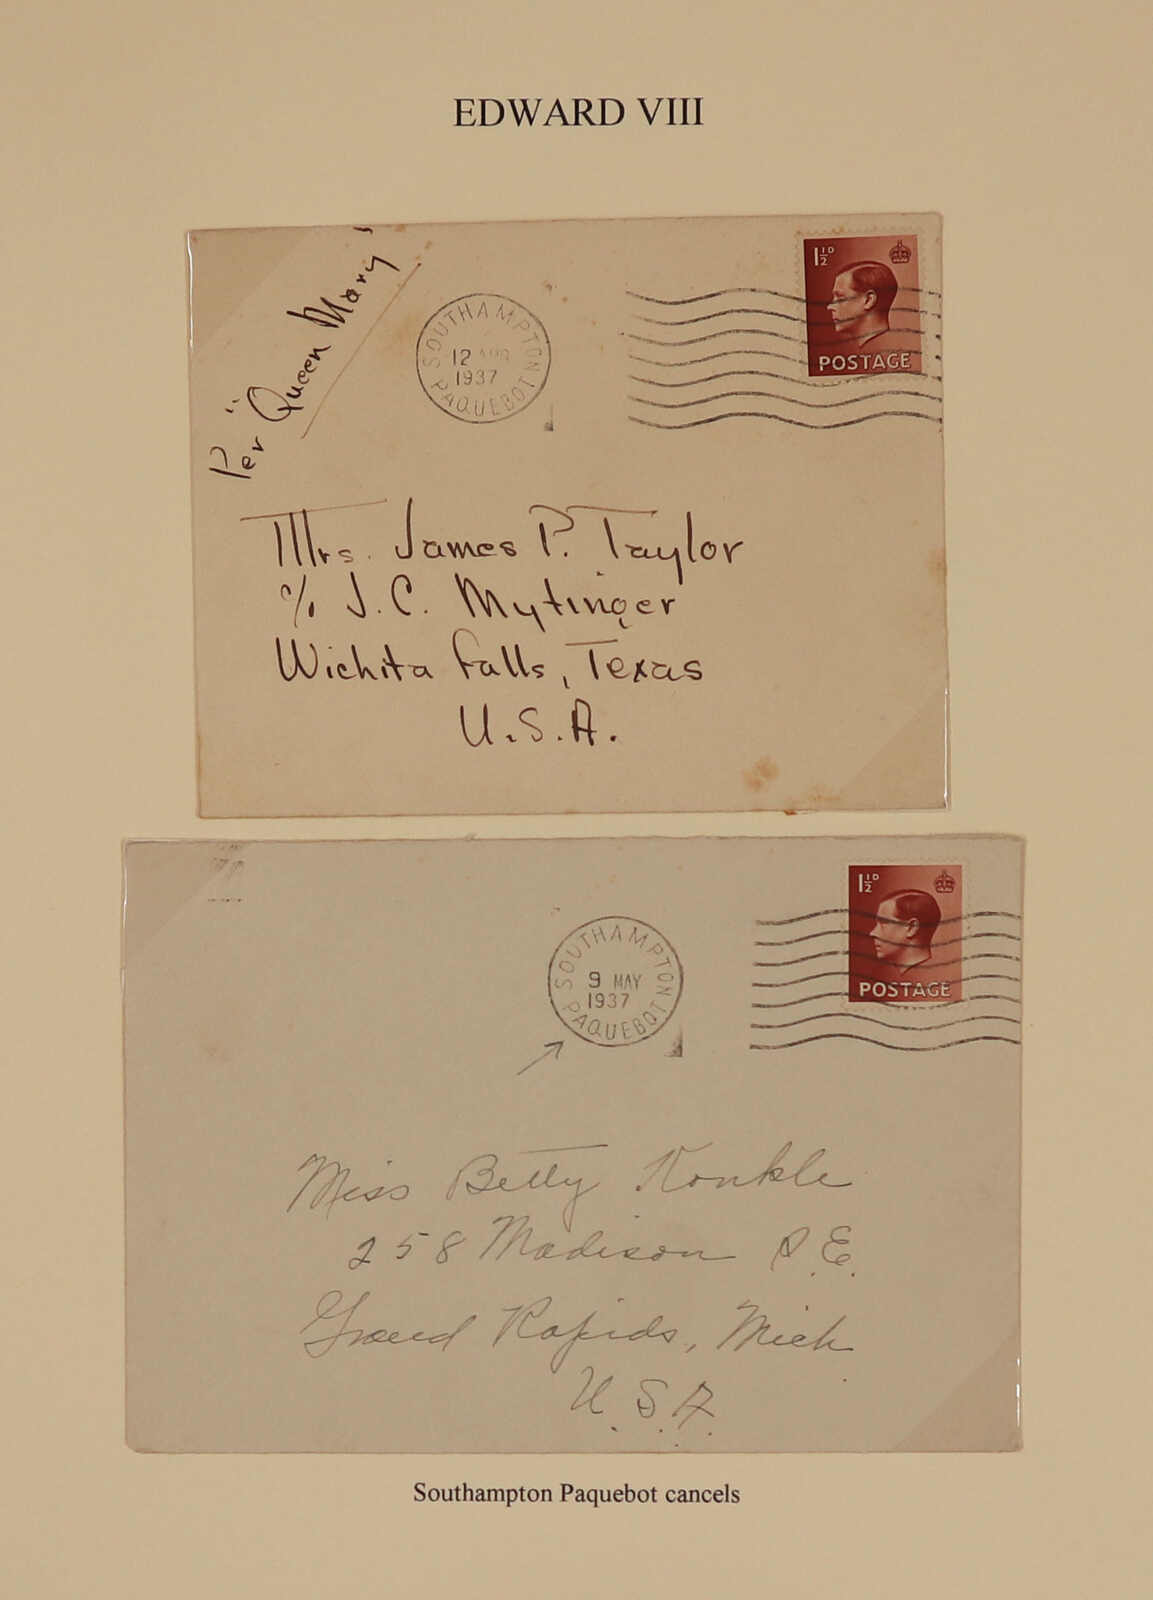 EDWARD VIII
Per "Queen Mary"
SOUTHAMPTON
12 APR
1937
PAQUEBOT
1½D
POSTAGE
Mrs. James P. Taylor
c/o J.C. Mytinger
Wichita Falls, Texas
U.S.A.
SOUTHAMPTON
9 MAY
1937
PAQUEBOT
1½D
POSTAGE
Miss Betty Konkle
258 Madison S.E.
Grand Rapids, Mich.
U.S.A.
Southampton Paquebot cancels